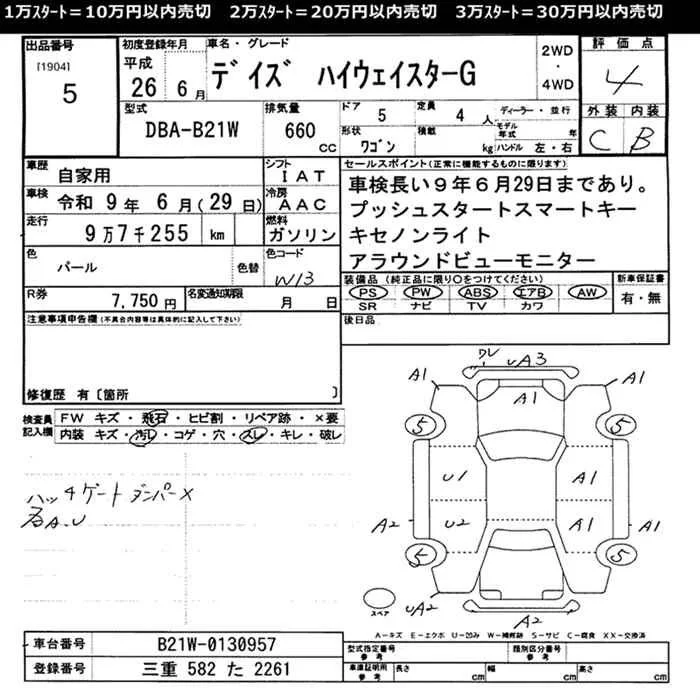 1万ｽﾀｰﾄ＝10万円以内売切　2万ｽﾀｰﾄ＝20万円以内売切　3万ｽﾀｰﾄ＝30万円以内売切
出品番号
[1904]
5
初度登録年月
平成
26 6月
車名・グレード
ﾃﾞｲｽﾞ ﾊｲｳｪｲｽﾀｰG
2WD
・
4WD
評価点
4
外装 内装
C B
型式
DBA-B21W
排気量
660 CC
ドア
5
定員
4 人
ディーラー・並行
モデル年式 年
形状
ﾜｺﾞﾝ
積載
kg
ハンドル 左・右
車歴
自家用
シフト
IAT
車検
令和 9年 6月(29日)
冷房
AAC
走行
9万7千255 km
燃料
ガソリン
色
パール
色替
色コード
W13
R券
7,750円
名変通知期限
月 日
セールスポイント(正常に機能するものに限ります)
車検長い9年6月29日まであり。
プッシュスタートスマートキー
キセノンライト
アラウンドビューモニター
装備品(純正品に限り〇をつけてください)
PS PW ABS エアB AW
SR ナビ TV カワ
新車保証書
有・無
後日品
注意事項申告欄(不具合内容等は具体的に記入して下さい)
修復歴 有〔箇所 〕
検査員記入欄
FW キズ・飛石・ヒビ割・リペア跡・×要
内装 キズ・汚レ・コゲ・穴・スレ・キレ・破レ
ハッチゲート ダンパー×
各A.U
UA3
A1
A1
A1
5
5
U1
A1
A2
U2
A1
A1
5
5
スペア
UA2
A2
A－キズ E－エクボ U－凹み W－補修跡 S－サビ C－腐食 XX－交換済
車台番号
B21W-0130957
登録番号
三重 582 た 2261
型式指定番号
参考
類別区分番号
参考
車庫証明用
参考
長さ cm
幅 cm
高さ cm